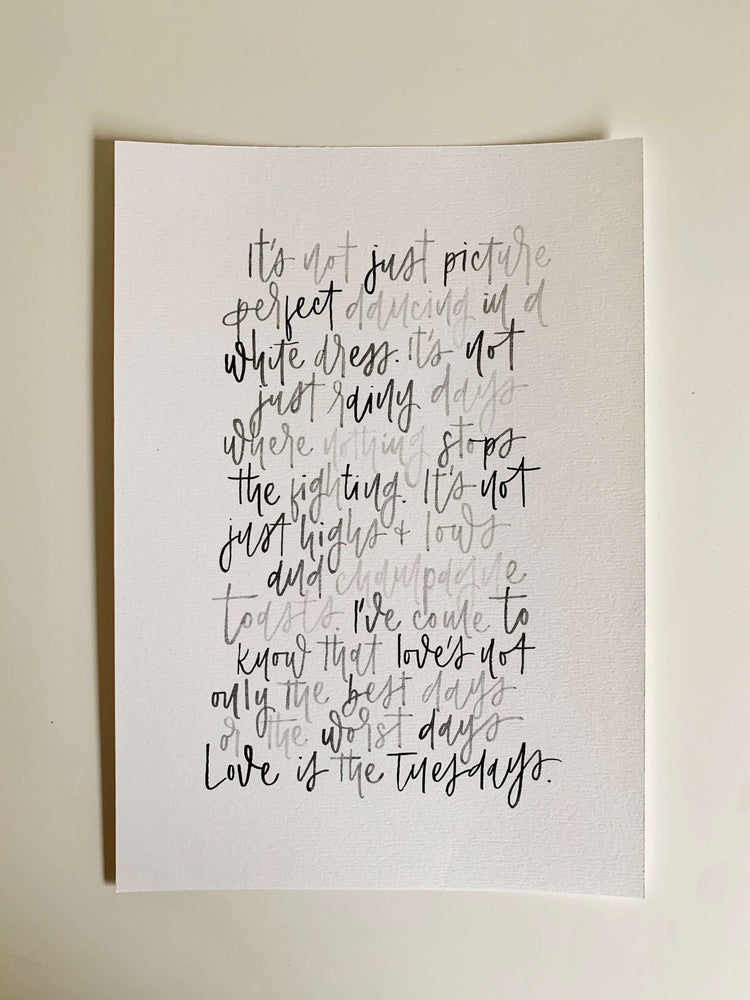 It's not just picture
perfect dancing in a
white dress. It's not
just rainy days
where nothing stops
the fighting. It's not
just highs + lows
and champagne
toasts. I've come to
know that love's not
only the best days
or the worst days
Love is the Tuesdays.